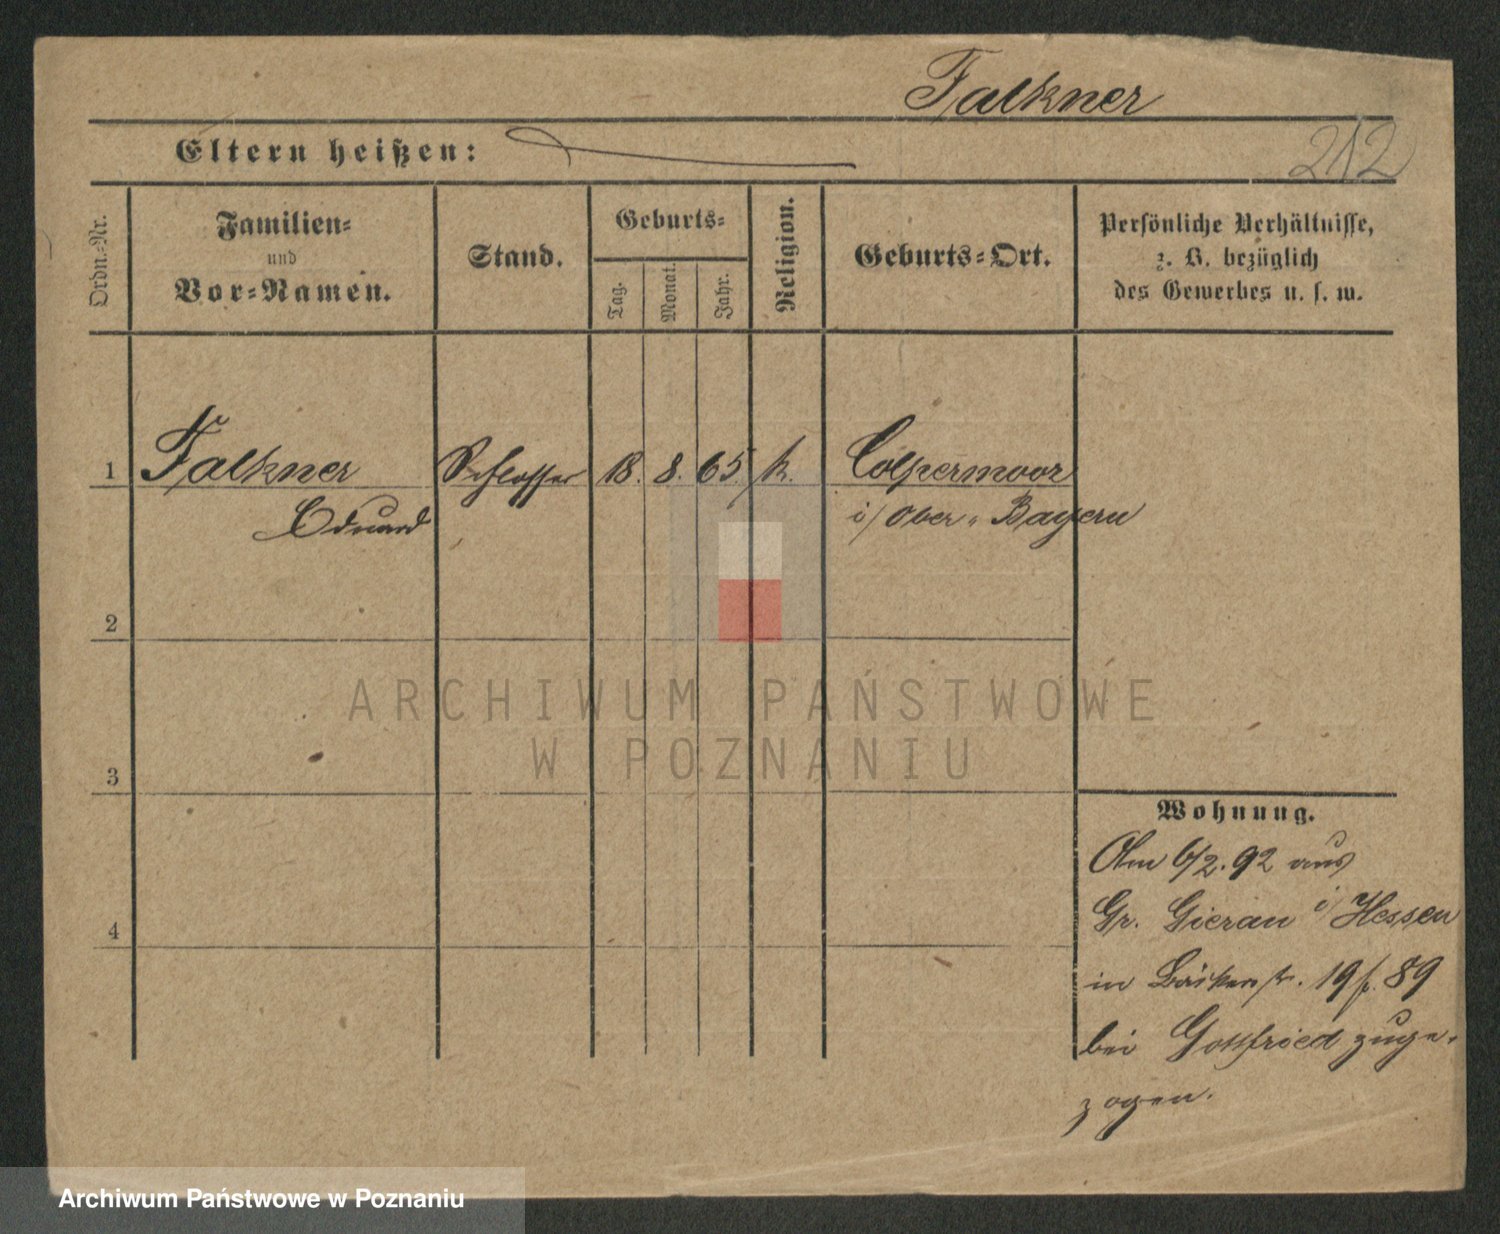 Falkner
Eltern heißen:
212
Ordn.-Nr.
Familien-
und
Vor-Namen.
Stand.
Geburts-
Tag.
Monat.
Jahr.
Religion.
Geburts-Ort.
Persönliche Verhältnisse,
z. B. bezüglich
des Gewerbes u. s. w.
1 Falkner Schlosser 18. 8. 65. k. Colpermoor
Eduard i/ Ober-Bayern
2
3
4
ARCHIWUM PAŃSTWOWE
W POZNANIU
Wohnung.
Am 6/2. 92 aus
Gr. Gierau i/ Hessen
in 19 89
bei Gottfried zuge-
zogen.
Archiwum Państwowe w Poznaniu